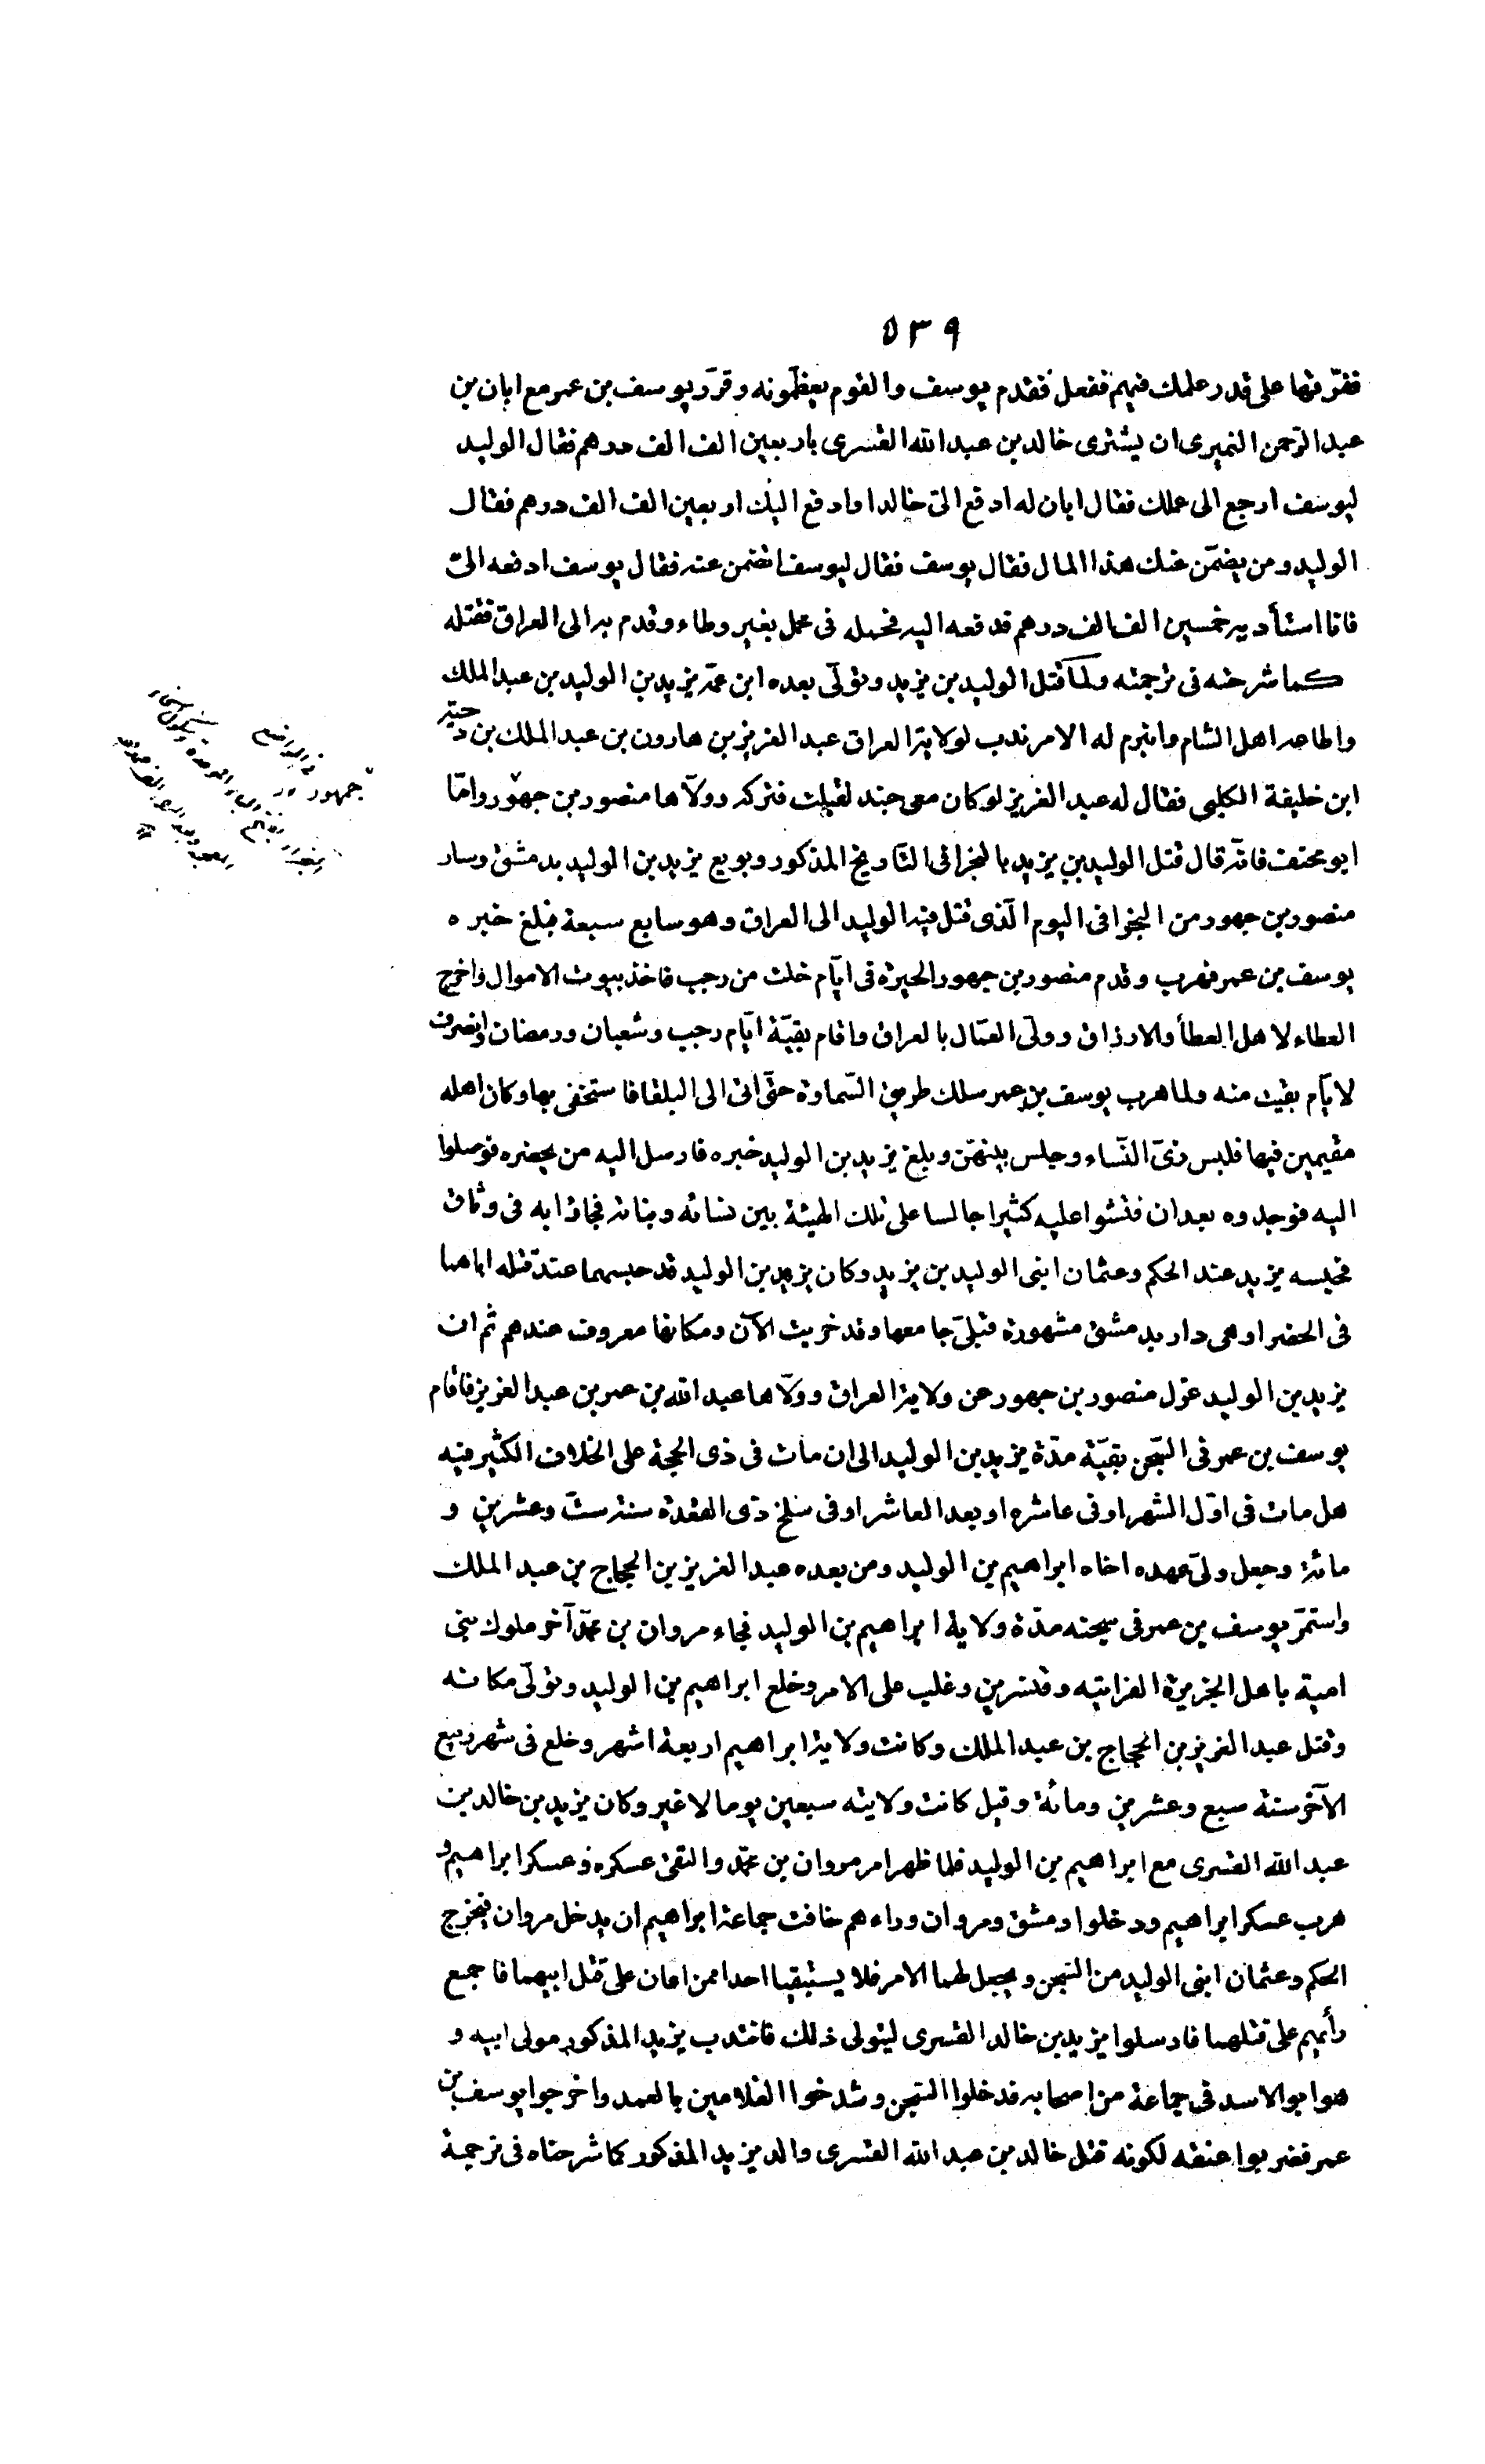 ٥٣٩
ففرّقها على قدر علمك فيهم ففعل فقدم يوسف والقوم يعظّمونه وقرّر يوسف بن عمر مع ابان بن
عبد الرّحمن النميرى ان يشترى خالد بن عبد الله القسرى باربعين الف الف درهم فقال الوليد
ليوسف ارجع الى عملك فقال ابان له ادفع الىّ خالدا وادفع اليك اربعين الف الف درهم فقال
الوليد ومن يضمّن عنك هذا المال فقال يوسف فقال ليوسف اتضمن عنه فقال يوسف ادفعه الىّ
فانا استأديه خمسين الف الف درهم فدفعه اليه فحمله فى محمل بغير وطاء وقدم به الى العراق فقتله
كما شرحته فى ترجمته ولمّا قتل الوليد بن يزيد وتولّى بعده ابن عمّه يزيد بن الوليد بن عبد الملك
واطاعه اهل الشام وانبرم له الامر ندب لولاية العراق عبد العزيز بن هارون بن عبد الملك بن دحية
ابن خليفة الكلبى فقال له عبد العزيز لو كان معى جند لقبلت فتركه وولّاها منصور بن جهور وامّا
ابو مخنف فانّه قال قتل الوليد بن يزيد بالبخرا فى التاريخ المذكور وبويع يزيد بن الوليد بدمشق وسار
منصور بن جهور من البخرا فى اليوم الّذى قتل فيه الوليد الى العراق وهو سابع سبعة فبلغ خبره
يوسف بن عمر فهرب وقدم منصور بن جهور الحيرة فى ايّام خلت من رجب فاخذ بيوت الاموال واخرج
العطاء لاهل العطأ والارزاق وولّى العمّال بالعراق واقام بقيّة ايّام رجب وشعبان ورمضان وانصرف
لايّام بقيت منه ولما هرب يوسف بن عمر سلك طريق السّماوة حتّى اتى الى البلقا فاستخفى بها وكان اهله
مقيمين فيها فلبس زىّ النّساء وجلس بينهنّ وبلغ يزيد بن الوليد خبره فارسل اليه من يحضره فوصلوا
اليه فوجدوه بعد ان فتشوا عليه كثيرا جالسا على تلك الهيئة بين نسائه وبناته فجاؤا به فى وثاق
فحبسه يزيد عند الحكم وعثمان ابنى الوليد بن يزيد وكان يزيد بن الوليد قد حبسهما عند قتله اباهما
فى الخضرا وهى دار بدمشق مشهورة قبلىّ جامعها وقد خربت الآن ومكانها معروف عندهم ثم ان
يزيد بن الوليد عزل منصور بن جهور عن ولاية العراق وولّاها عبد الله بن عمر بن عبد العزيز فاقام
يوسف بن عمر فى السّجن بقيّة مدّة يزيد بن الوليد الى ان مات فى ذى الحجة على الخلاف الكثير فيه
هل مات فى اوّل الشهر او فى عاشره او بعد العاشر او فى سلخ ذى القعدة سنة ستّ وعشرين و
مائة وجعل ولىّ عهده اخاه ابراهيم بن الوليد ومن بعده عبد العزيز بن الحجاج بن عبد الملك
واستمرّ يوسف بن عمر فى سجنه مدّة ولاية ابراهيم بن الوليد فجاء مروان بن محمّد آخر ملوك بنى
امية باهل الجزيرة الفراتيه وقنسرين وغلب على الامر وخلع ابراهيم بن الوليد وتولّى مكانه
وقتل عبد العزيز بن الحجاج بن عبد الملك وكانت ولاية ابراهيم اربعة اشهر وخلع فى شهر ربيع
الآخر سنة سبع وعشرين ومائة وقيل كانت ولايته سبعين يوما لا غير وكان يزيد بن خالد بن
عبد الله القسرى مع ابراهيم بن الوليد فلما ظهر امر مروان بن محمّد والتقى عسكره وعسكر ابراهيم و
هرب عسكر ابراهيم ودخلوا دمشق ومروان وراءهم خافت جماعة ابراهيم ان يدخل مروان فيخرج
الحكم وعثمان ابنى الوليد من السّجن ويجعل لهما الامر فلا يستبقيا احدا ممن اعان على قتل ابيهما فاجمع
رأيهم على قتلهما فارسلوا يزيد بن خالد القسرى ليتولى ذلك فانتدب يزيد المذكور مولى ابيه و
هو ابو الاسد فى جماعة من اصحابه فدخلوا السّجن وشدخوا الغلامين بالعمد واخرجوا يوسف بن
عمر فضربوا عنقه لكونه قتل خالد بن عبد الله القسرى والد يزيد المذكور كما شرحناه فى ترجمة
جمهور